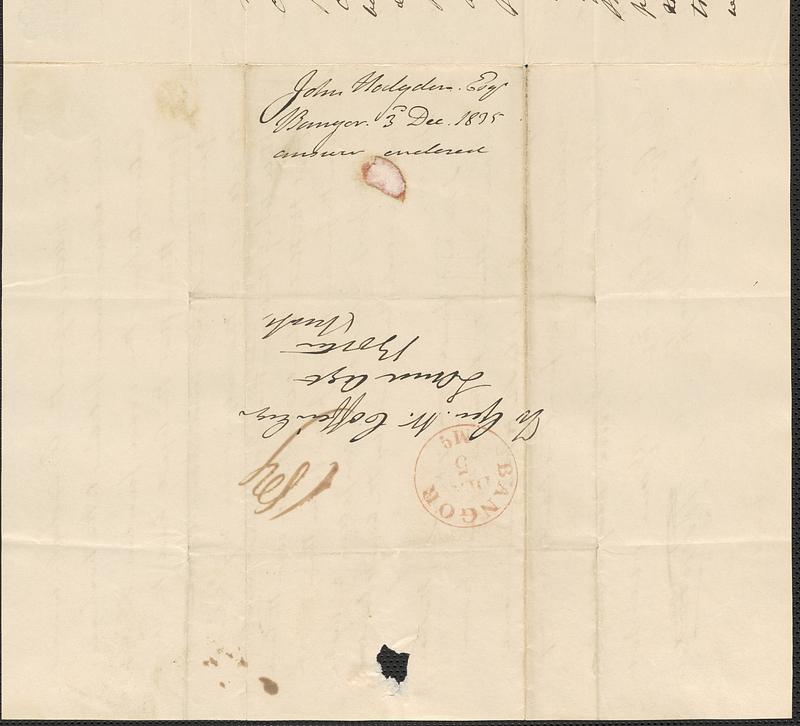 John Hodgdon. Esqr
Bangor. 3d Dec. 1835
answer endorsed
To Geo. W. Coffin Esqr
Land Agt
Boston
Mass.
BANGOR
DEC
5
Me
18¾